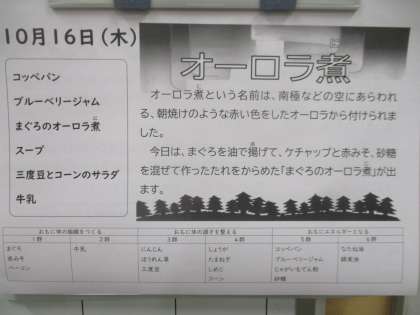 10月16日（木）
コッペパン
ブルーベリージャム
まぐろのオーロラ煮
スープ
三度豆とコーンのサラダ
牛乳
オーロラ煮
オーロラ煮という名前は、南極などの空にあらわれ
る、朝焼けのような赤い色をしたオーロラから付けられま
した。
今日は、まぐろを油で揚げて、ケチャップと赤みそ、砂糖
を混ぜて作ったたれをからめた「まぐろのオーロラ煮」が出
ます。
おもに体の組織をつくる おもに体の調子を整える おもにエネルギーとなる
1群 2群 3群 4群 5群 6群
まぐろ 牛乳 にんじん しょうが コッペパン なたね油
赤みそ ほうれん草 たまねぎ ブルーベリージャム 綿実油
ベーコン 三度豆 しめじ じゃがいもでん粉
コーン 砂糖